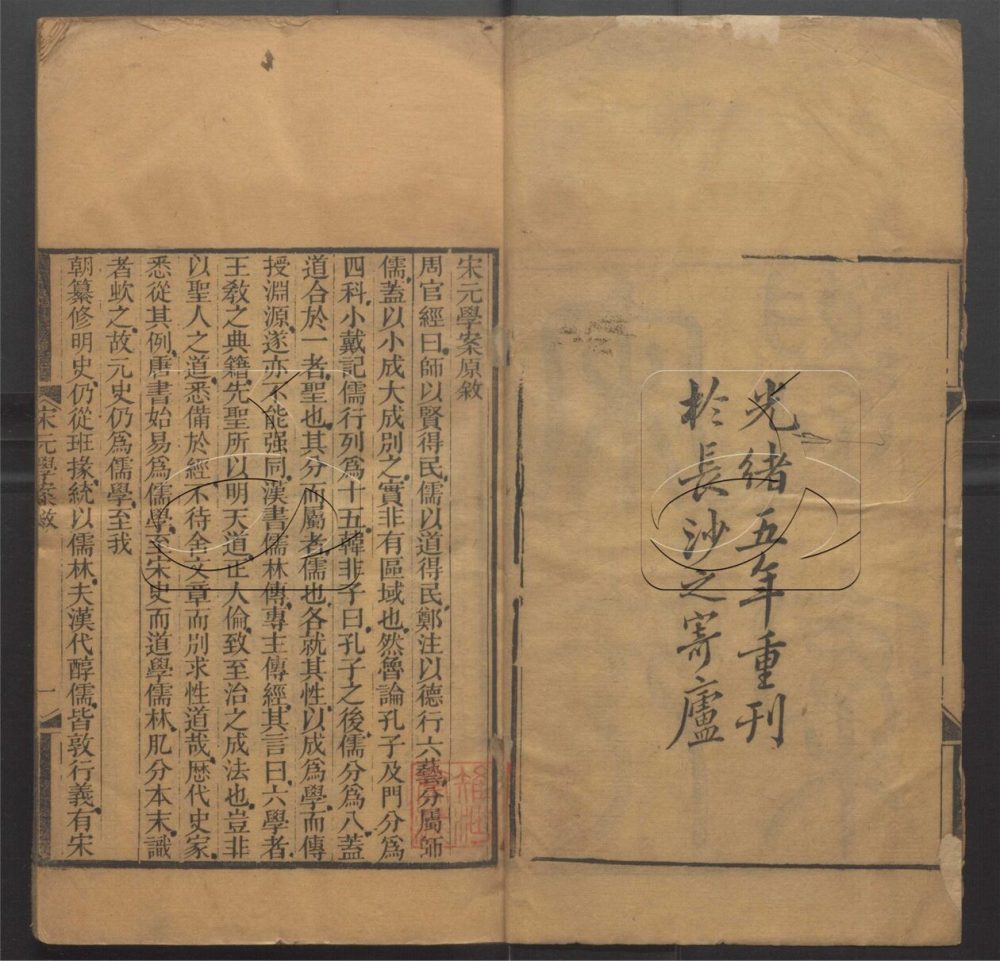 光緒五年重刊
於長沙之寄廬
宋元學案原敘
周官經曰師以賢得民儒以道得民鄭注以德行六藝分屬師
儒蓋以小成大成別之實非有區域也然魯論孔子及門分爲
四科小戴記儒行列爲十五韓非子曰孔子之後儒分爲八蓋
道合於一者聖也其分而屬者儒也各就其性以成爲學而傳
授淵源遂亦不能强同漢書儒林傳專主傳經其言曰六學者
王敎之典籍先聖所以明天道正人倫致至治之成法也豈非
以聖人之道悉備於經不待舍文章而別求性道哉歷代史家
悉從其例唐書始易爲儒學至宋史而道學儒林肥分本末識
者歉之故元史仍爲儒學至我
朝纂修明史仍從班掾統以儒林夫漢代醇儒皆敦行義有宋
宋元學案敘
一